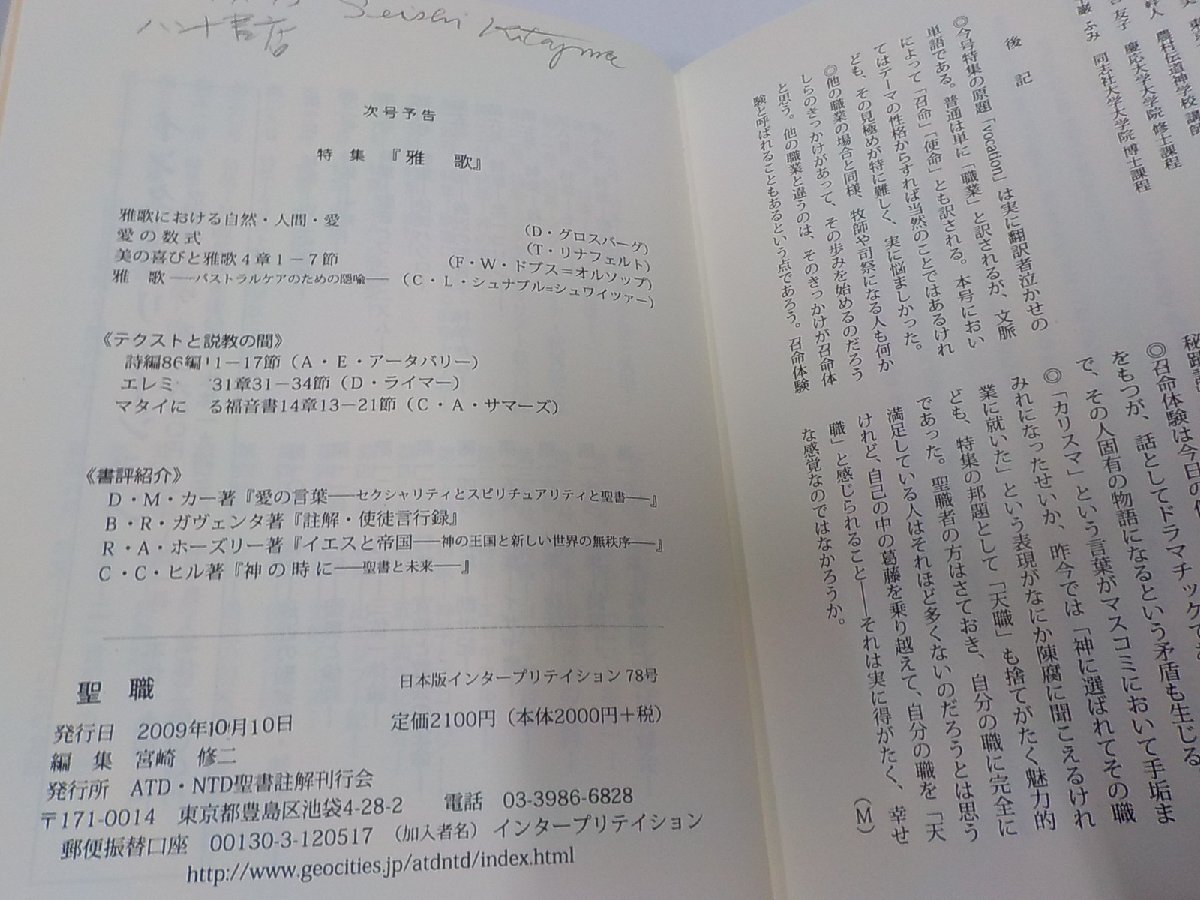 Seishi Kitajima
八十書店
次号予告
特 集 『雅 歌』
雅歌における自然・人間・愛 (D・グロスバーグ)
愛の数式 (T・リナフェルト)
美の喜びと雅歌4章1-7節 (F・W・ドブス=オルソップ)
雅 歌──パストラルケアのための隠喩── (C・L・シュナブル=シュワイツァー)
《テクストと説教の間》
詩編86編11-17節(A・E・アータバリー)
エレミ 31章31-34節(D・ライマー)
マタイに る福音書14章13-21節(C・A・サマーズ)
《書評紹介》
D・M・カー著『愛の言葉──セクシャリティとスピリチュアリティと聖書──』
B・R・ガヴェンタ著『註解・使徒言行録』
R・A・ホーズリー著『イエスと帝国──神の王国と新しい世界の無秩序──』
C・C・ヒル著『神の時に──聖書と未来──』
聖 職 日本版インタープリテイション78号
発行日 2009年10月10日 定価2100円(本体2000円+税)
編 集 宮崎 修二
発行所 ATD・NTD聖書註解刊行会
〒171-0014 東京都豊島区池袋4-28-2 電話 03-3986-6828
郵便振替口座 00130-3-120517 (加入者名)インタープリテイション
http://www.geocities.jp/atdntd/index.html
幹人 農村伝道神学校講師
友子 慶応大学大学院修士課程
ふみ 同志社大学大学院博士課程
後 記
◎今号特集の原題「vocation」は実に翻訳者泣かせの
単語である。普通は単に「職業」と訳されるが、文脈
によって「召命」「使命」とも訳される。本号におい
てはテーマの性格からすれば当然のことではあるけれ
ども、その見極めが特に難しく、実に悩ましかった。
◎他の職業の場合と同様、牧師や司祭になる人も何か
しらのきっかけがあって、その歩みを始めるのだろう
と思う。他の職業と違うのは、そのきっかけが召命体
験と呼ばれることもあるという点であろう。召命体験
◎召命体験は今日の
をもつが、話としてドラマチックで
で、その人固有の物語になるという矛盾も生じる
◎「カリスマ」という言葉がマスコミにおいて手垢ま
みれになったせいか、昨今では「神に選ばれてその職
業に就いた」という表現がなにか陳腐に聞こえるけれ
ども、特集の邦題として「天職」も捨てがたく魅力的
であった。聖職者の方はさておき、自分の職に完全に
満足している人はそれほど多くないのだろうとは思う
けれど、自己の中の葛藤を乗り越えて、自分の職を「天
職」と感じられること──それは実に得がたく、幸せ
な感覚なのではなかろうか。 (M)